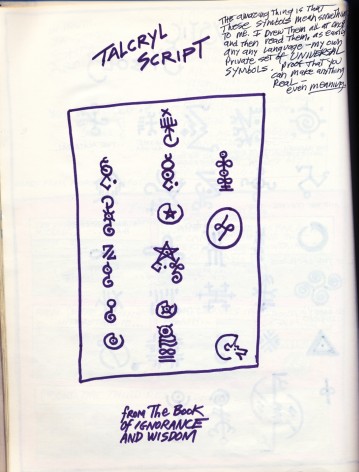 TALCRYL
SCRIPT
The amazing Thing is that
These symbols mean something
To me. I drew Them all at once
and then read Them, as easily
any any Language - my own
Private set of UNIVERSAL
Symbols. Proof That you
can make anything
Real -
even meaning.
from The Book
of IGNORANCE
AND WISDOM